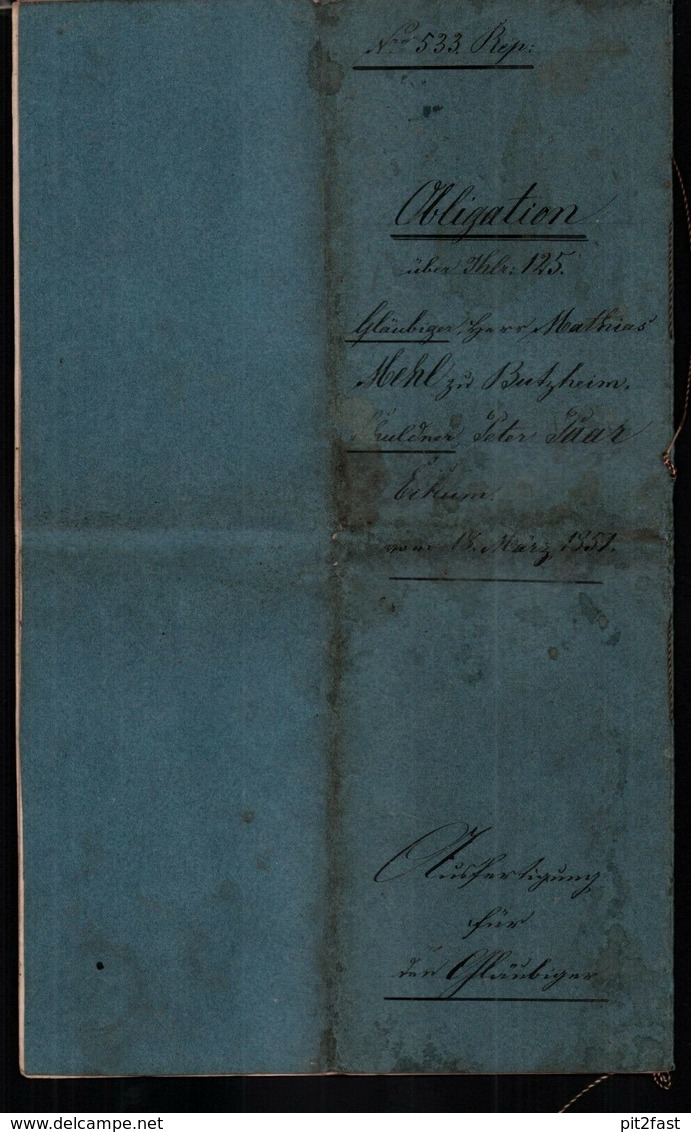 No. 533. Rep:
Obligation
über Thlr: 125.
Gläubiger, Herr Mathias
Mehl zu Butzheim.
Schuldner, Peter
Eikum.
vom 18. März 1851.
Ausfertigung
für
den Gläubiger
pit2fast